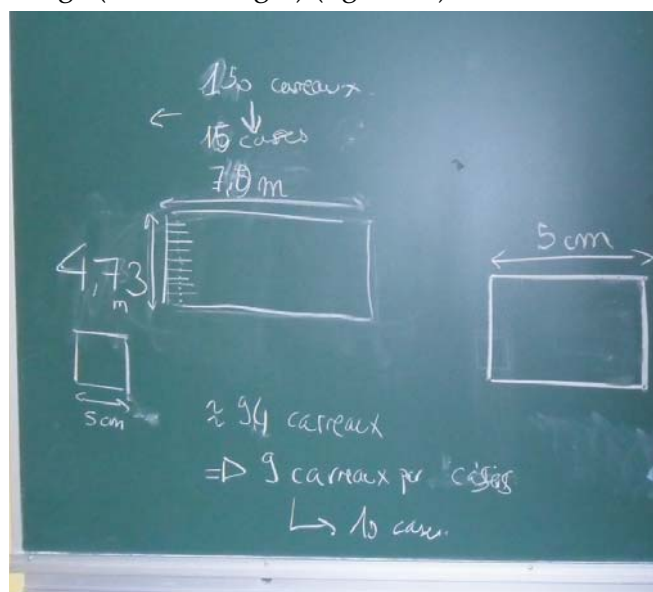 150 careaux
←
↓
15 cases
7,5 m
4,73 m
5 cm
5 cm
≈ 94 carreaux
=> 9 carreaux par
↳ 10 cases.